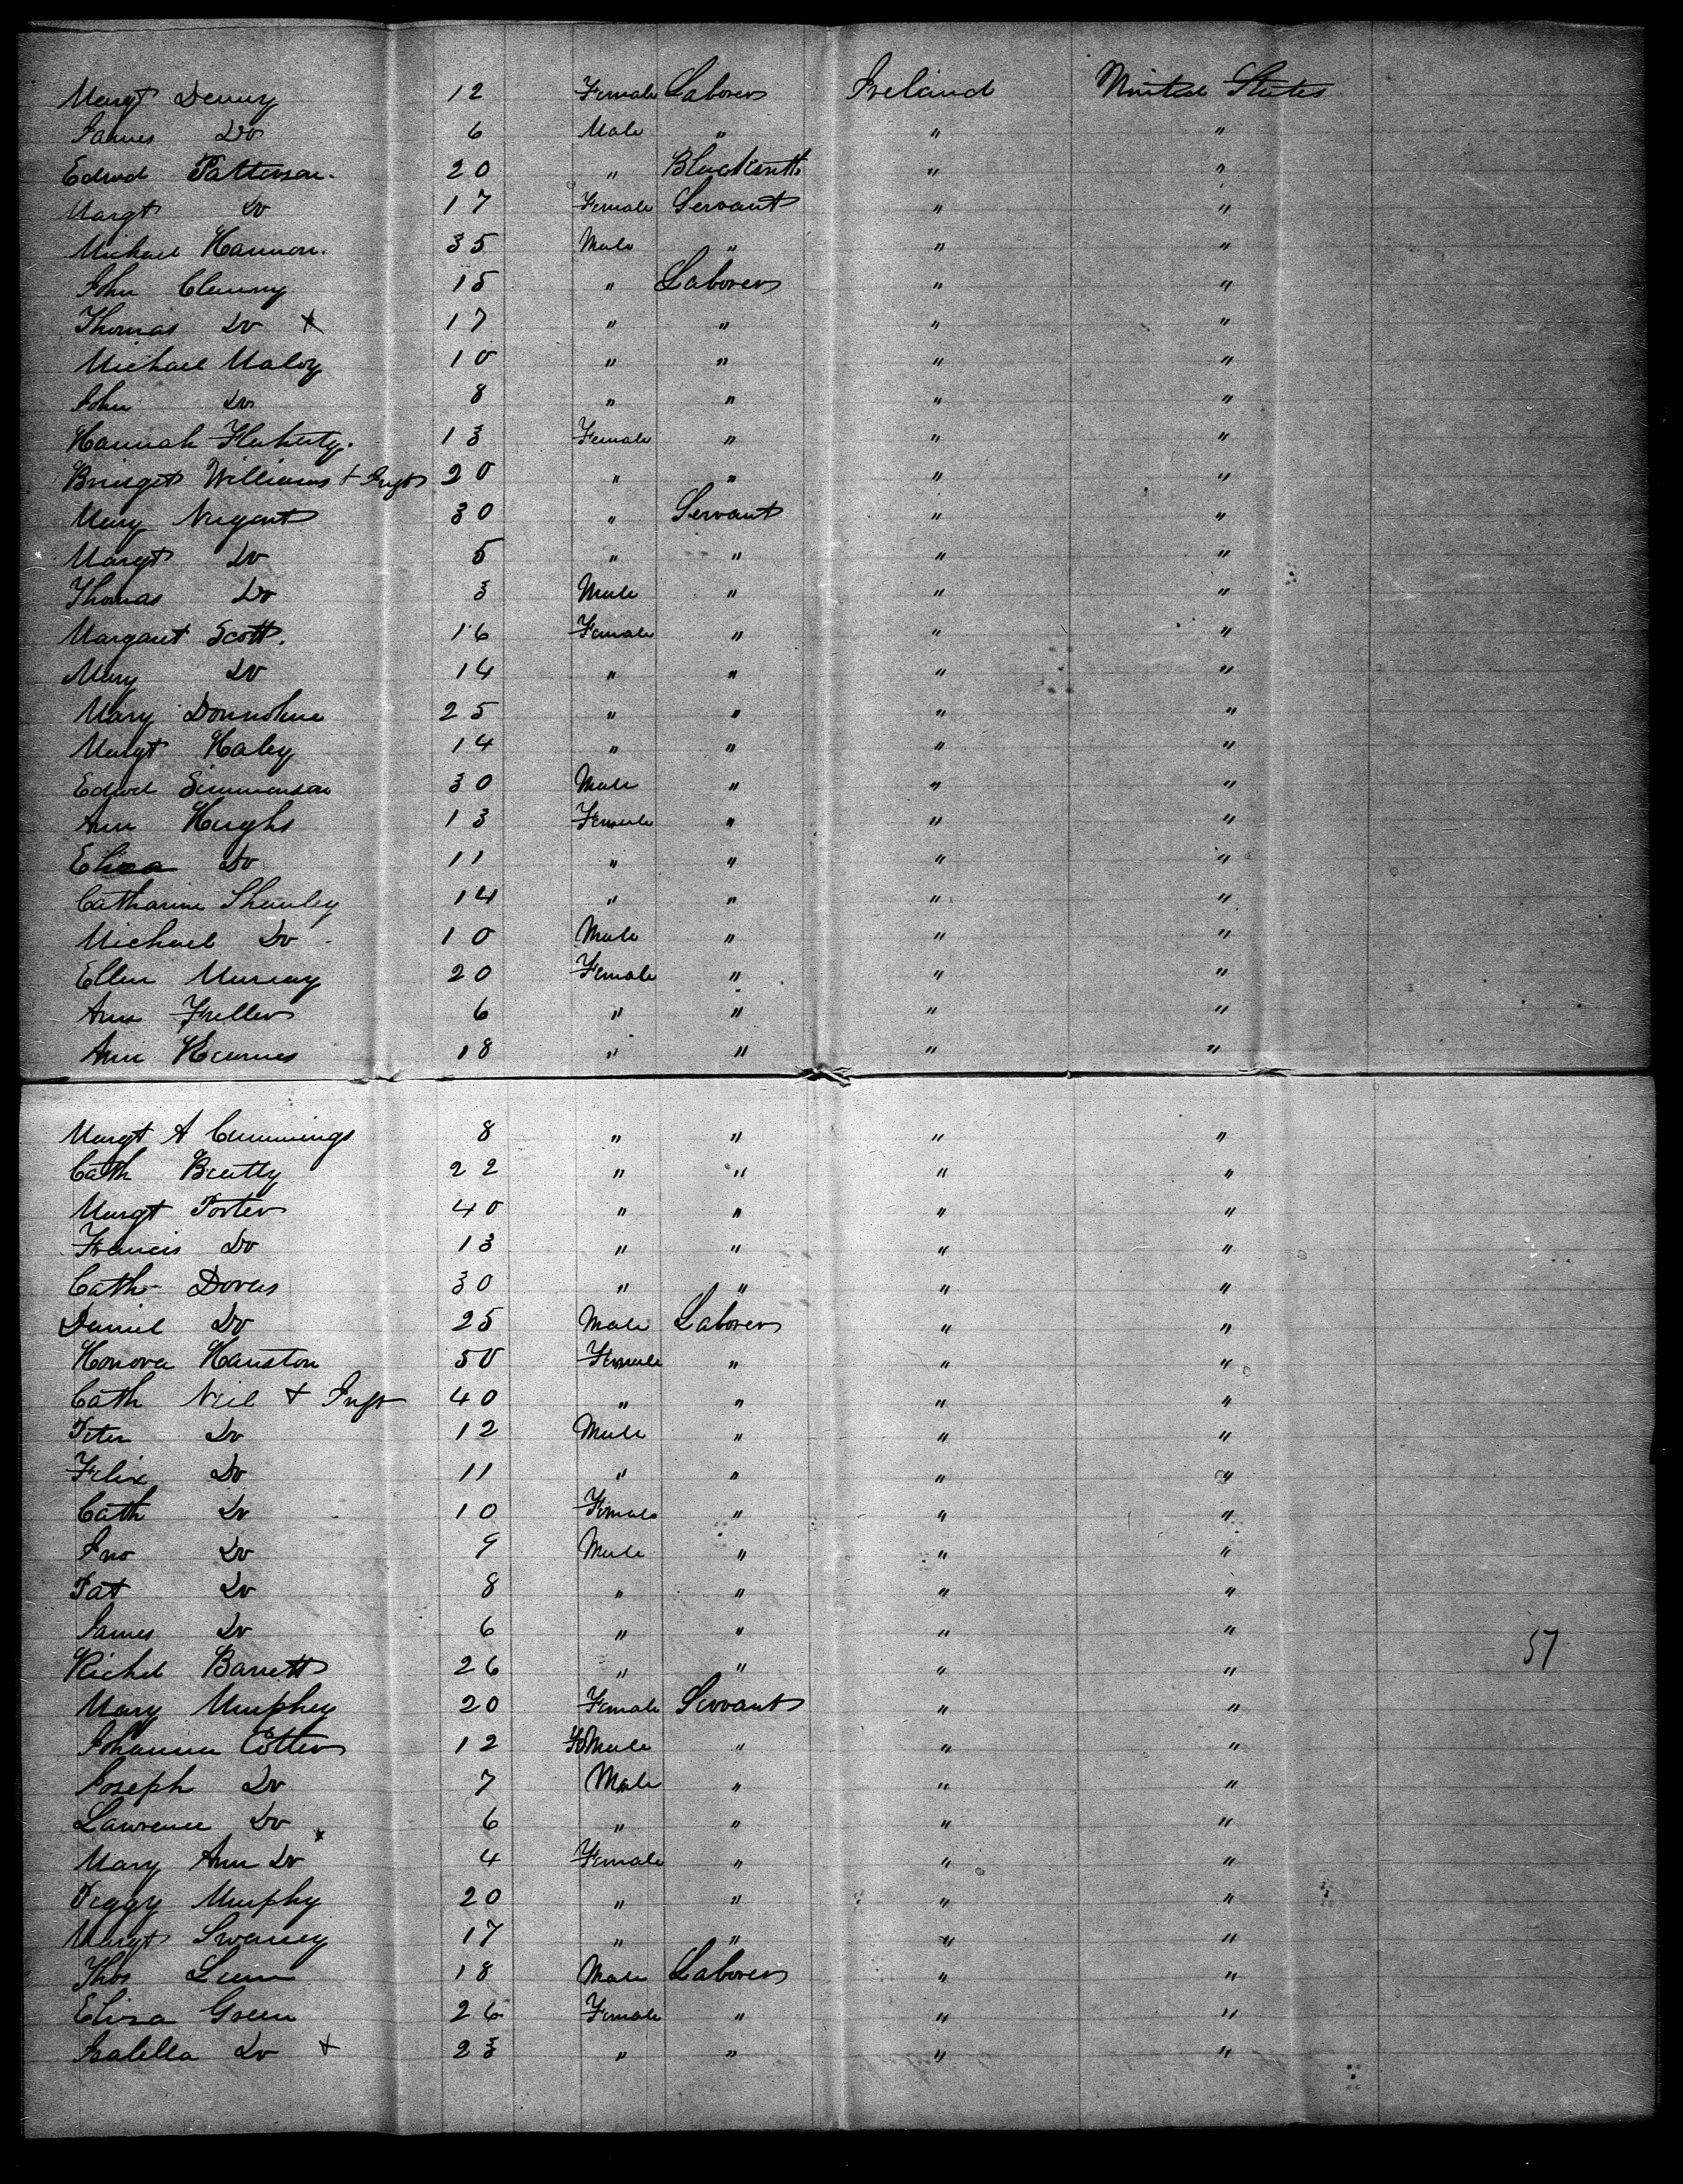 Margt Denny 12 Female Laborer Ireland United States
James Do 6 Male " " "
Edwd Patterson. 20 " Blacksmith " "
Margt Do 17 Female Servant " "
Michael Hannon. 35 Male " " "
John Clenny 15 " Laborer " "
Thomas Do x 17 " " " "
Michael Maloy 10 " " " "
John Do 8 " " " "
Hannah Flaherty. 13 Female " " "
Bridget Williams + Inft 20 " " " "
Mary Nugent 30 " Servant " "
Margt Do 5 " " " "
Thomas Do 3 Male " " "
Margaret Scott. 16 Female " " "
Mary Do 14 " " " "
Mary Donnohue 25 " " " "
Margt Haley 14 " " " "
Edwd Simmonson 30 Male " " "
Ann Hughs 13 Female " " "
Eliza Do 11 " " " "
Catharine Shanley 14 " " " "
Michael Do 10 Male " " "
Ellen Murray 20 Female " " "
Ann 6 " " " "
Ann 18 " " " "
Margt A Cummings 8 " " " "
Cath Beatty 22 " " " "
Margt Porter 40 " " " "
Francis Do 13 " " " "
Cath 30 " " " "
Daniel Do 25 Male Laborer " "
Honora Hauston 50 Female " " "
Cath Neil + Inft 40 " " " "
Peter Do 12 Male " " "
Felix Do 11 " " " "
Cath Do 10 Female " " "
Jno Do 9 Male " " "
Pat Do 8 " " " "
James Do 6 " " " "
Richd Barrett 26 " " " " 57
Mary Murphey 20 Female Servant " "
Johanna Cotter 12 FeMale " " "
Joseph Do 7 Male " " "
Lawrence Do 6 " " " "
Mary Ann Do 4 Female " " "
Peggy Murphy 20 " " " "
Margt Swaney 17 " " " "
Thos 18 Male Laborer " "
Eliza Green 26 Female " " "
Isabella Do + 23 " " " "